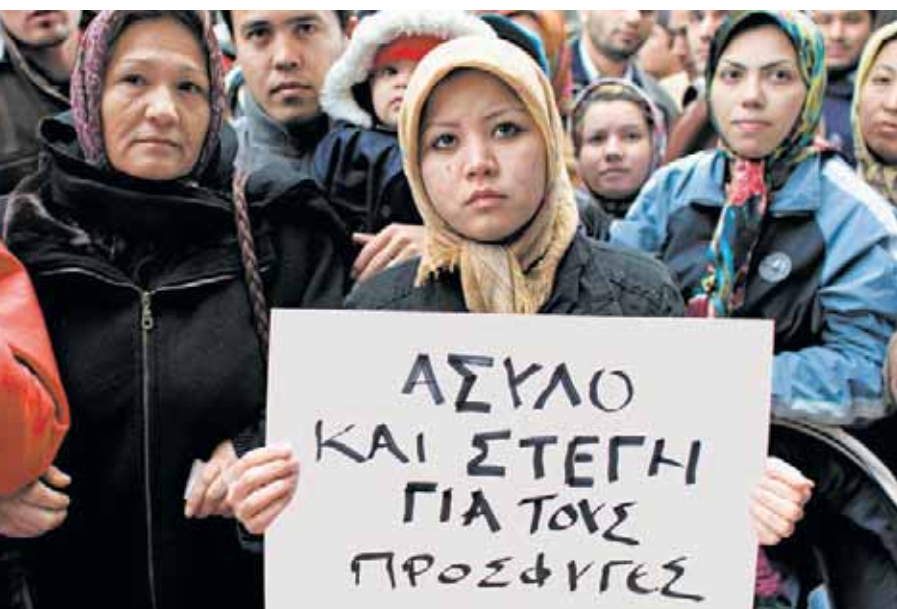 ΑΣΥΛΟ
ΚΑΙ ΣΤΕΓΗ
ΓΙΑ ΤΟΥΣ
ΠΡΟΣΦΥΓΕΣ